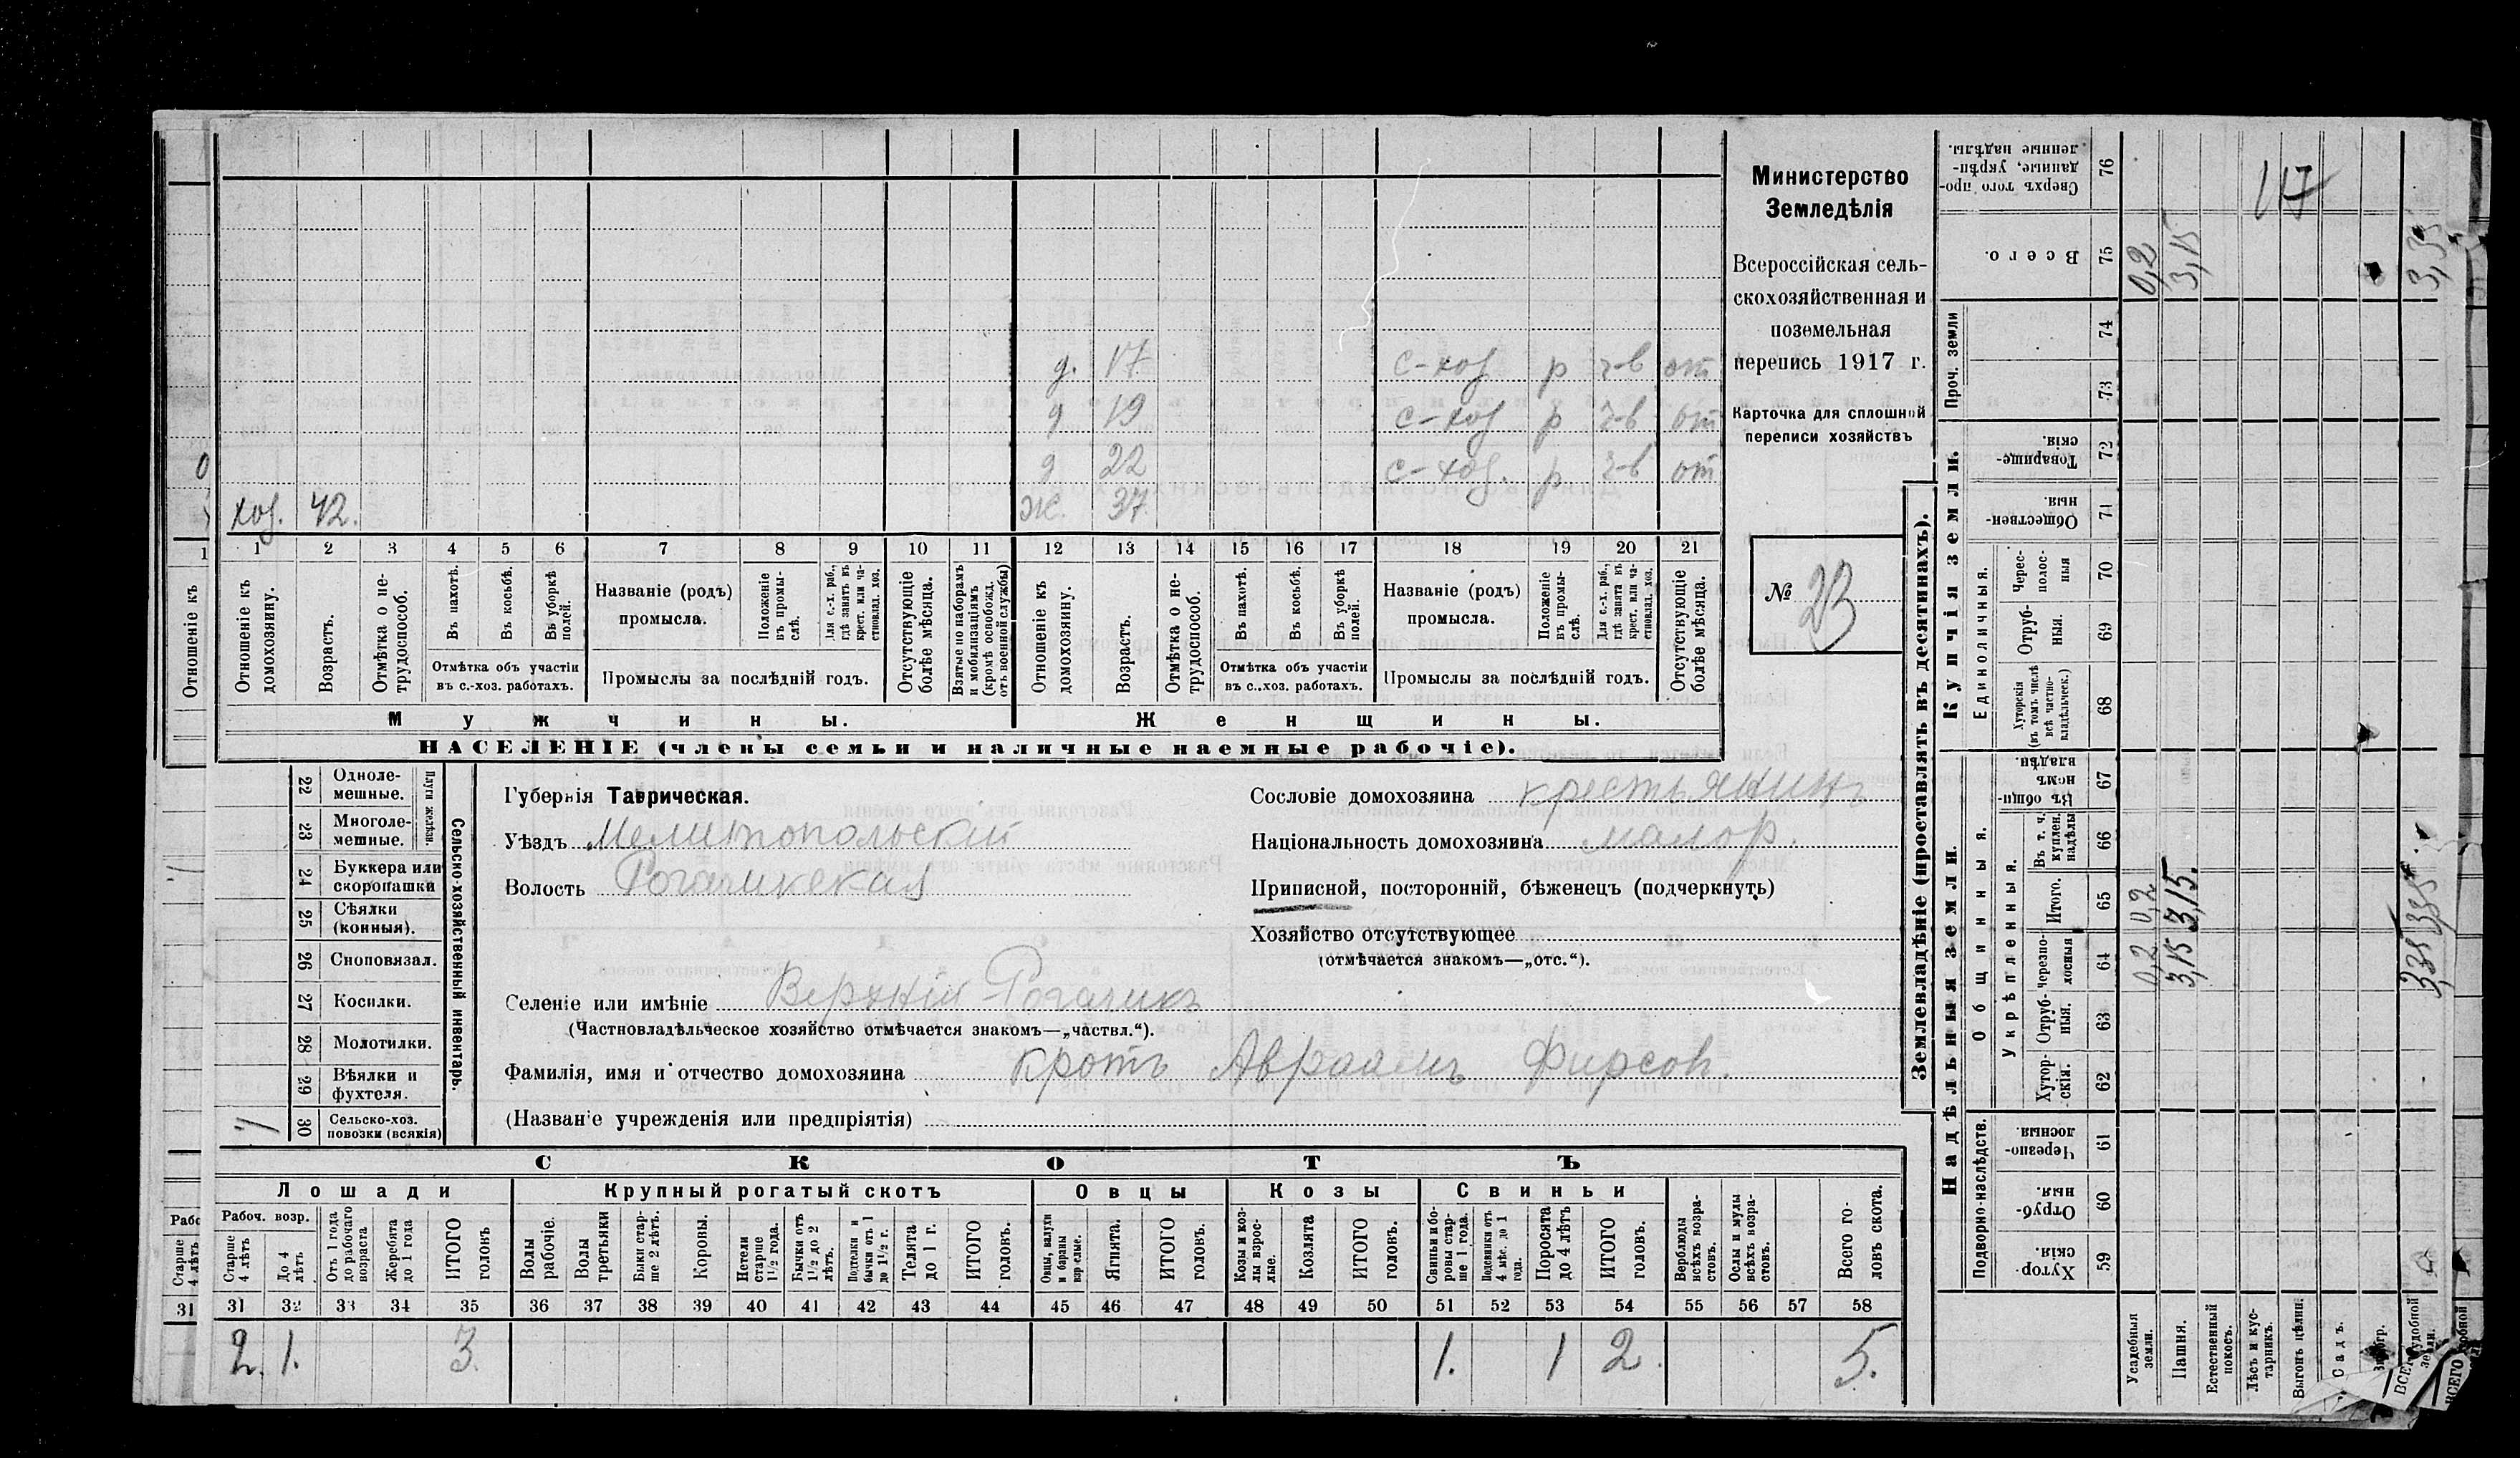 д. 17 с-хоз р ч-в от
д 19 с-хоз р ч-в от
д 22 с-хоз. р ч-в от
хоз. 42. ж. 37
1 2 3 4 5 6 7 8 9 10 11 12 13 14 15 16 17 18 19 20 21
Отношеніе къ домохозяину.
Возрастъ.
Отмѣтка о нетрудоспособ.
Въ пахотѣ.
Въ косьбѣ.
Въ уборкѣ полей.
Отмѣтка объ участіи
въ с.-хоз. работахъ.
Названіе (родъ)
промысла.
Положеніе въ промыслѣ.
Для с.-х. раб., гдѣ занятъ въ крест. или частновлад. хоз.
Промыслы за послѣдній годъ.
Отсутствующіе болѣе мѣсяца.
Взятые по наборамъ и мобилизаціямъ (кромѣ освобожд. отъ военной службы)
Отношеніе къ домохозяину.
Возрастъ.
Отмѣтка о нетрудоспособ.
Въ пахотѣ.
Въ косьбѣ.
Въ уборкѣ полей.
Отмѣтка объ участіи
въ с.-хоз. работахъ.
Названіе (родъ)
промысла.
Положеніе въ промыслѣ.
Для с.-х. раб., гдѣ занята въ крест. или частновлад. хоз.
Промыслы за послѣдній годъ.
Отсутствующіе болѣе мѣсяца.
Мужчины. Женщины.
НАСЕЛЕНІЕ (члены семьи и наличные наемные рабочіе).
Министерство
Земледѣлія
Всероссійская сель-
скохозяйственная и
поземельная
перепись 1917 г.
Карточка для сплошной
переписи хозяйствъ
№ 23
22 Одноле-
мешные.
23 Многоле-
мешные.
Плуги желѣзн.
24 Буккера или
скоропашки
25 Сѣялки
(конныя).
26 Сноповязал.
27 Косилки.
28 Молотилки.
29 Вѣялки и
фухтеля.
30 Сельско-хоз.
повозки (всякія)
Сельско-хозяйственный инвентарь.
Губернія Таврическая.
Уѣздъ Мелитопольскій
Волость Рогачикская
Сословіе домохозяина крестьянинъ
Національность домохозяина малор.
Приписной, посторонній, бѣженецъ (подчеркнуть)
Хозяйство отсутствующее
(отмѣчается знакомъ—„отс.“).
Селеніе или имѣніе Верхній-Рогачикъ
(Частновладѣльческое хозяйство отмѣчается знакомъ—„частвл.“).
Фамилія, имя и отчество домохозяина Кротъ Авраамъ Фирсов.
(Названіе учрежденія или предпріятія)
СКОТЪ
Лошади Крупный рогатый скотъ Овцы Козы Свиньи
Рабоч. возр.
Старше 4 лѣтъ
До 4 лѣтъ
Отъ 1 года до рабочаго возраста
Жеребята до 1 года
ИТОГО головъ
Волы рабочіе.
Волы третьяки
Быки старше 2 лѣтъ.
Коровы.
Нетели старше 1½ года.
Бычки отъ 1½ до 2 лѣтъ.
Подтелки и бычки отъ 1 до 1½ г.
Телята до 1 г.
ИТОГО головъ.
Овцы, валухи и бараны взрослые.
Ягнята.
ИТОГО головъ.
Козы и козлы взрослые.
Козлята
ИТОГО головъ.
Свиньи и боровы старше 1 года.
Подсвинки отъ 4 мѣс. до 1 года.
Поросята до 4 лѣтъ
ИТОГО головъ.
Верблюды всѣхъ возрастовъ.
Ослы и мулы всѣхъ возрастовъ.
Всего головъ скота.
31 32 33 34 35 36 37 38 39 40 41 42 43 44 45 46 47 48 49 50 51 52 53 54 55 56 57 58
2. 1. 3. 1. 1 2. 5.
Землевладѣніе (проставлять въ десятинахъ).
Надѣльныя земли. Купчія земли.
Подворно-наслѣдств.
Общинныя.
Укрѣпленныя.
Единоличныя.
Проч. земли
Хуторскія. 59
Отрубныя. 60
Черезполосныя. 61
Хуторскія. 62
Отрубныя. 63
Черезполосныя 64
Итого. 65
Въ т. ч. куплен. надѣлы 66
Въ общинномъ владѣн. 67
Хуторскія (въ томъ числѣ всѣ частновладѣльческ.) 68
Отрубныя. 69
Чересполосныя 70
Общественныя. 71
Товарищескія. 72
73
74
Всего. 75
Сверхъ того проданные, укрѣпленные надѣлы. 76
Усадебныя земли. 0,2 0,2 0,2
Пашня. 3,15 3,15. 3,15
Естественный покосъ.
Лѣсъ и кустарникъ.
Выгонъ цѣлин.
Садъ.
3,35 3,35 3,35
Отношеніе къ
Старше 4 лѣтъ
31